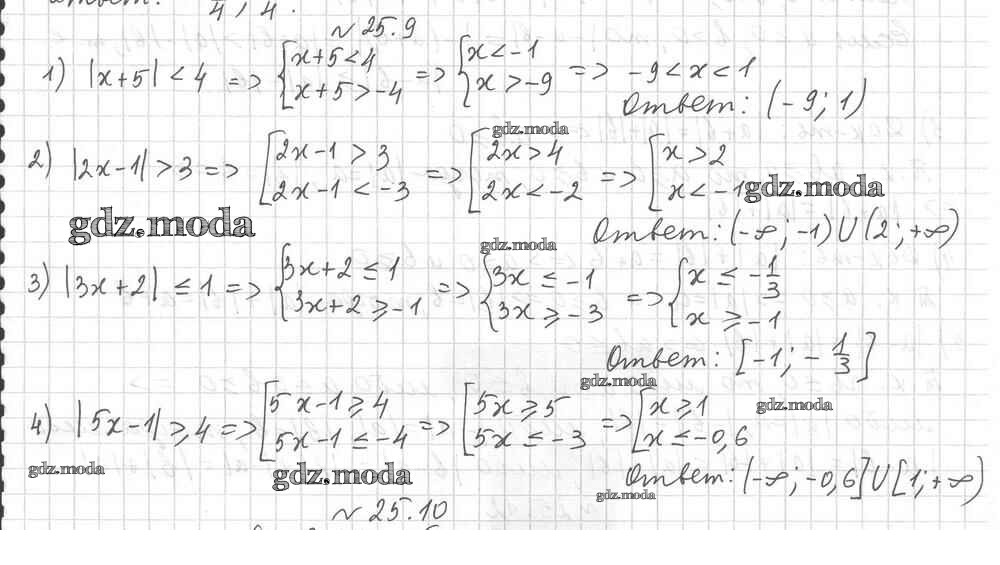 № 25.9
1) |x+5| < 4 => { x+5 < 4 ; x+5 > -4 => { x < -1 ; x > -9 => -9 < x < 1
Ответ: (-9; 1)
gdz.moda
2) |2x-1| > 3 => [ 2x-1 > 3 ; 2x-1 < -3 => [ 2x > 4 ; 2x < -2 => [ x > 2 ; x < -1
gdz.moda
gdz.moda
Ответ: (-∞; -1) U (2; +∞)
gdz.moda
3) |3x+2| ≤ 1 => { 3x+2 ≤ 1 ; 3x+2 ≥ -1 => { 3x ≤ -1 ; 3x ≥ -3 => { x ≤ -1/3 ; x ≥ -1
Ответ: [-1; -1/3]
gdz.moda
gdz.moda
4) |5x-1| ≥ 4 => [ 5x-1 ≥ 4 ; 5x-1 ≤ -4 => [ 5x ≥ 5 ; 5x ≤ -3 => [ x ≥ 1 ; x ≤ -0,6
gdz.moda
gdz.moda
Ответ: (-∞; -0,6] U [1; +∞)
gdz.moda
№ 25.10